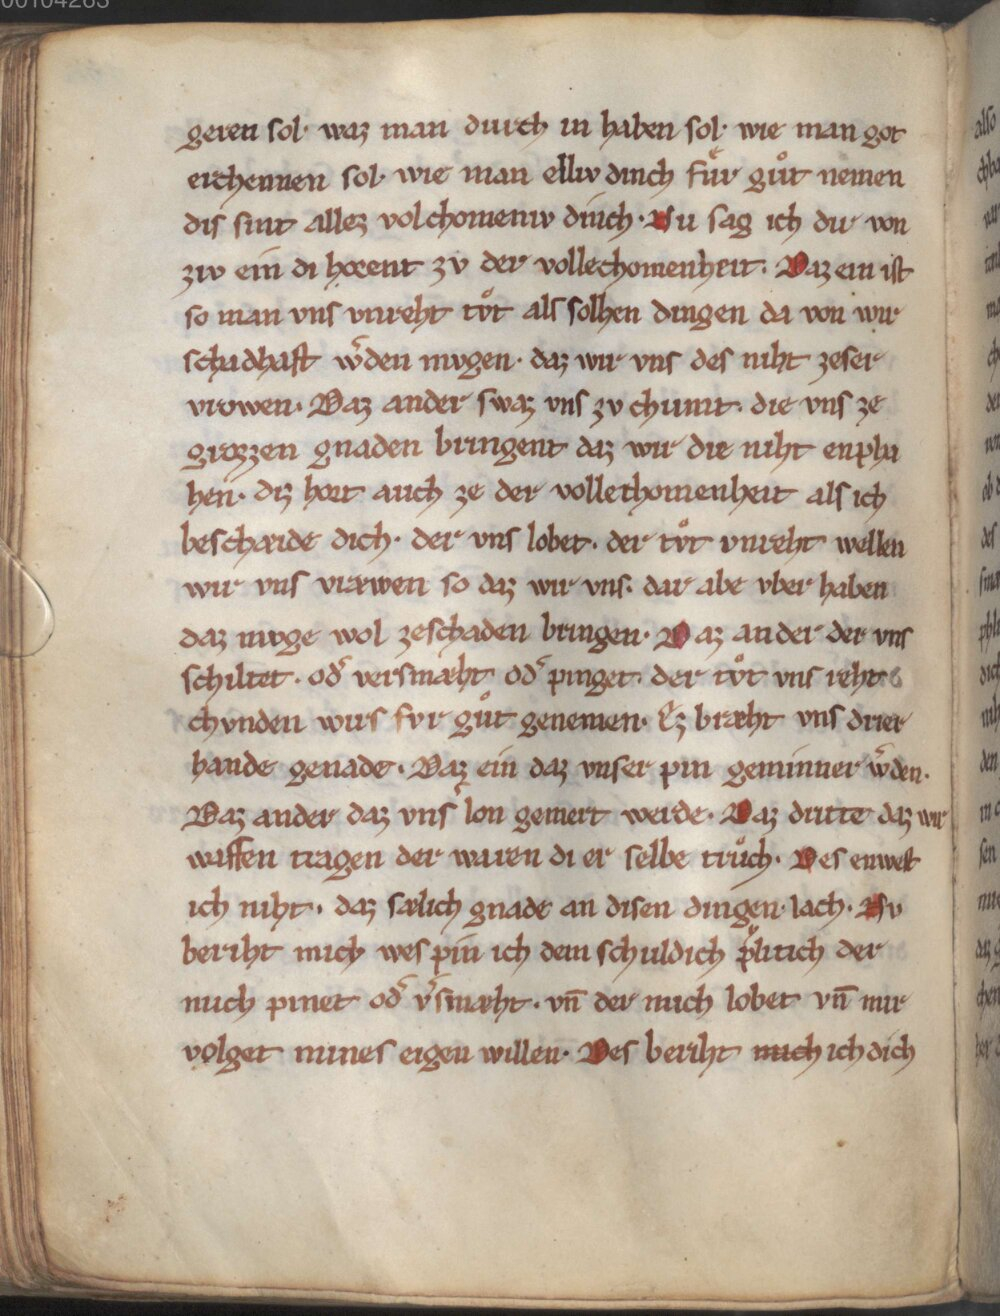 00104263
geren sol· waz man durch in haben sol· wie man got
erchennen sol· wie man elliv dinch fuͤr guͦt nemen
dis sint allez volchomeniv dinch· Nu sag ich dir von
ziv ein di hœrent zv der vollechomenheit. Daz ein ist
so man vns vnreht tvͦt als solhen dingen da von wir
schadhaft w̓den mvgen· daz wir vns des niht zeser
vrowen. Daz ander swaz vns zv chumt. die vns ze
grozzen gnaden bringent daz wir die niht enpha
hen· diz hort auch ze der vollechomenheit als ich
beschæide dich· der vns lobet. der tvͦt vnreht wellen
wir vns vræwen so daz wir vns. dar abe vber haben
daz mvge wol zeschaden bringen· Daz ander der vns
schiltet. od̓ versmæht od̓ pinget. der tvͦt vns reht
chvnden wirs fvr guͦt genemen. Ez bræht vns drier
hande genade. Daz ein daz vnser pin geminner w̓den.
Daz ander daz vns lon gemert werde. Daz dritte daz wir
waffen tragen der waren di er selbe truͦch. Des enwest
ich niht. daz sælich gnade an disen dingen lach. Nv
beriht mich wes pin ich dem schuldich p̓litich der
mich pinet od̓ v̓smæht. vn̄ der mich lobet vn̄ mir
volget mines eigen willen· Des beriht mich ich dich